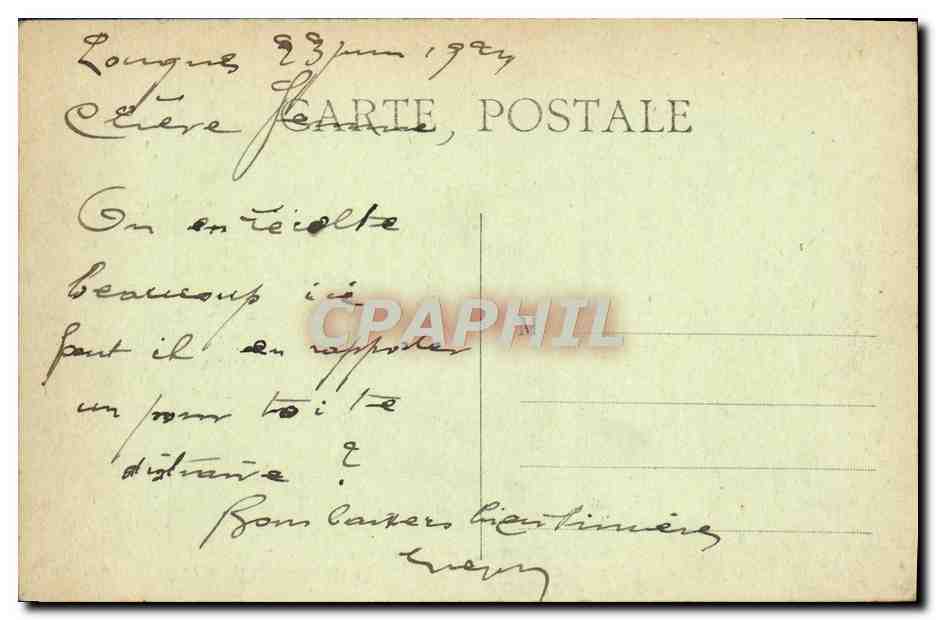 Longues 23 juin 1924
CARTE POSTALE
Chère femme
On en récolte
beaucoup ici
faut il en rapporter
un pour toi te
distraire ?
CPAPHIL
Bons baisers